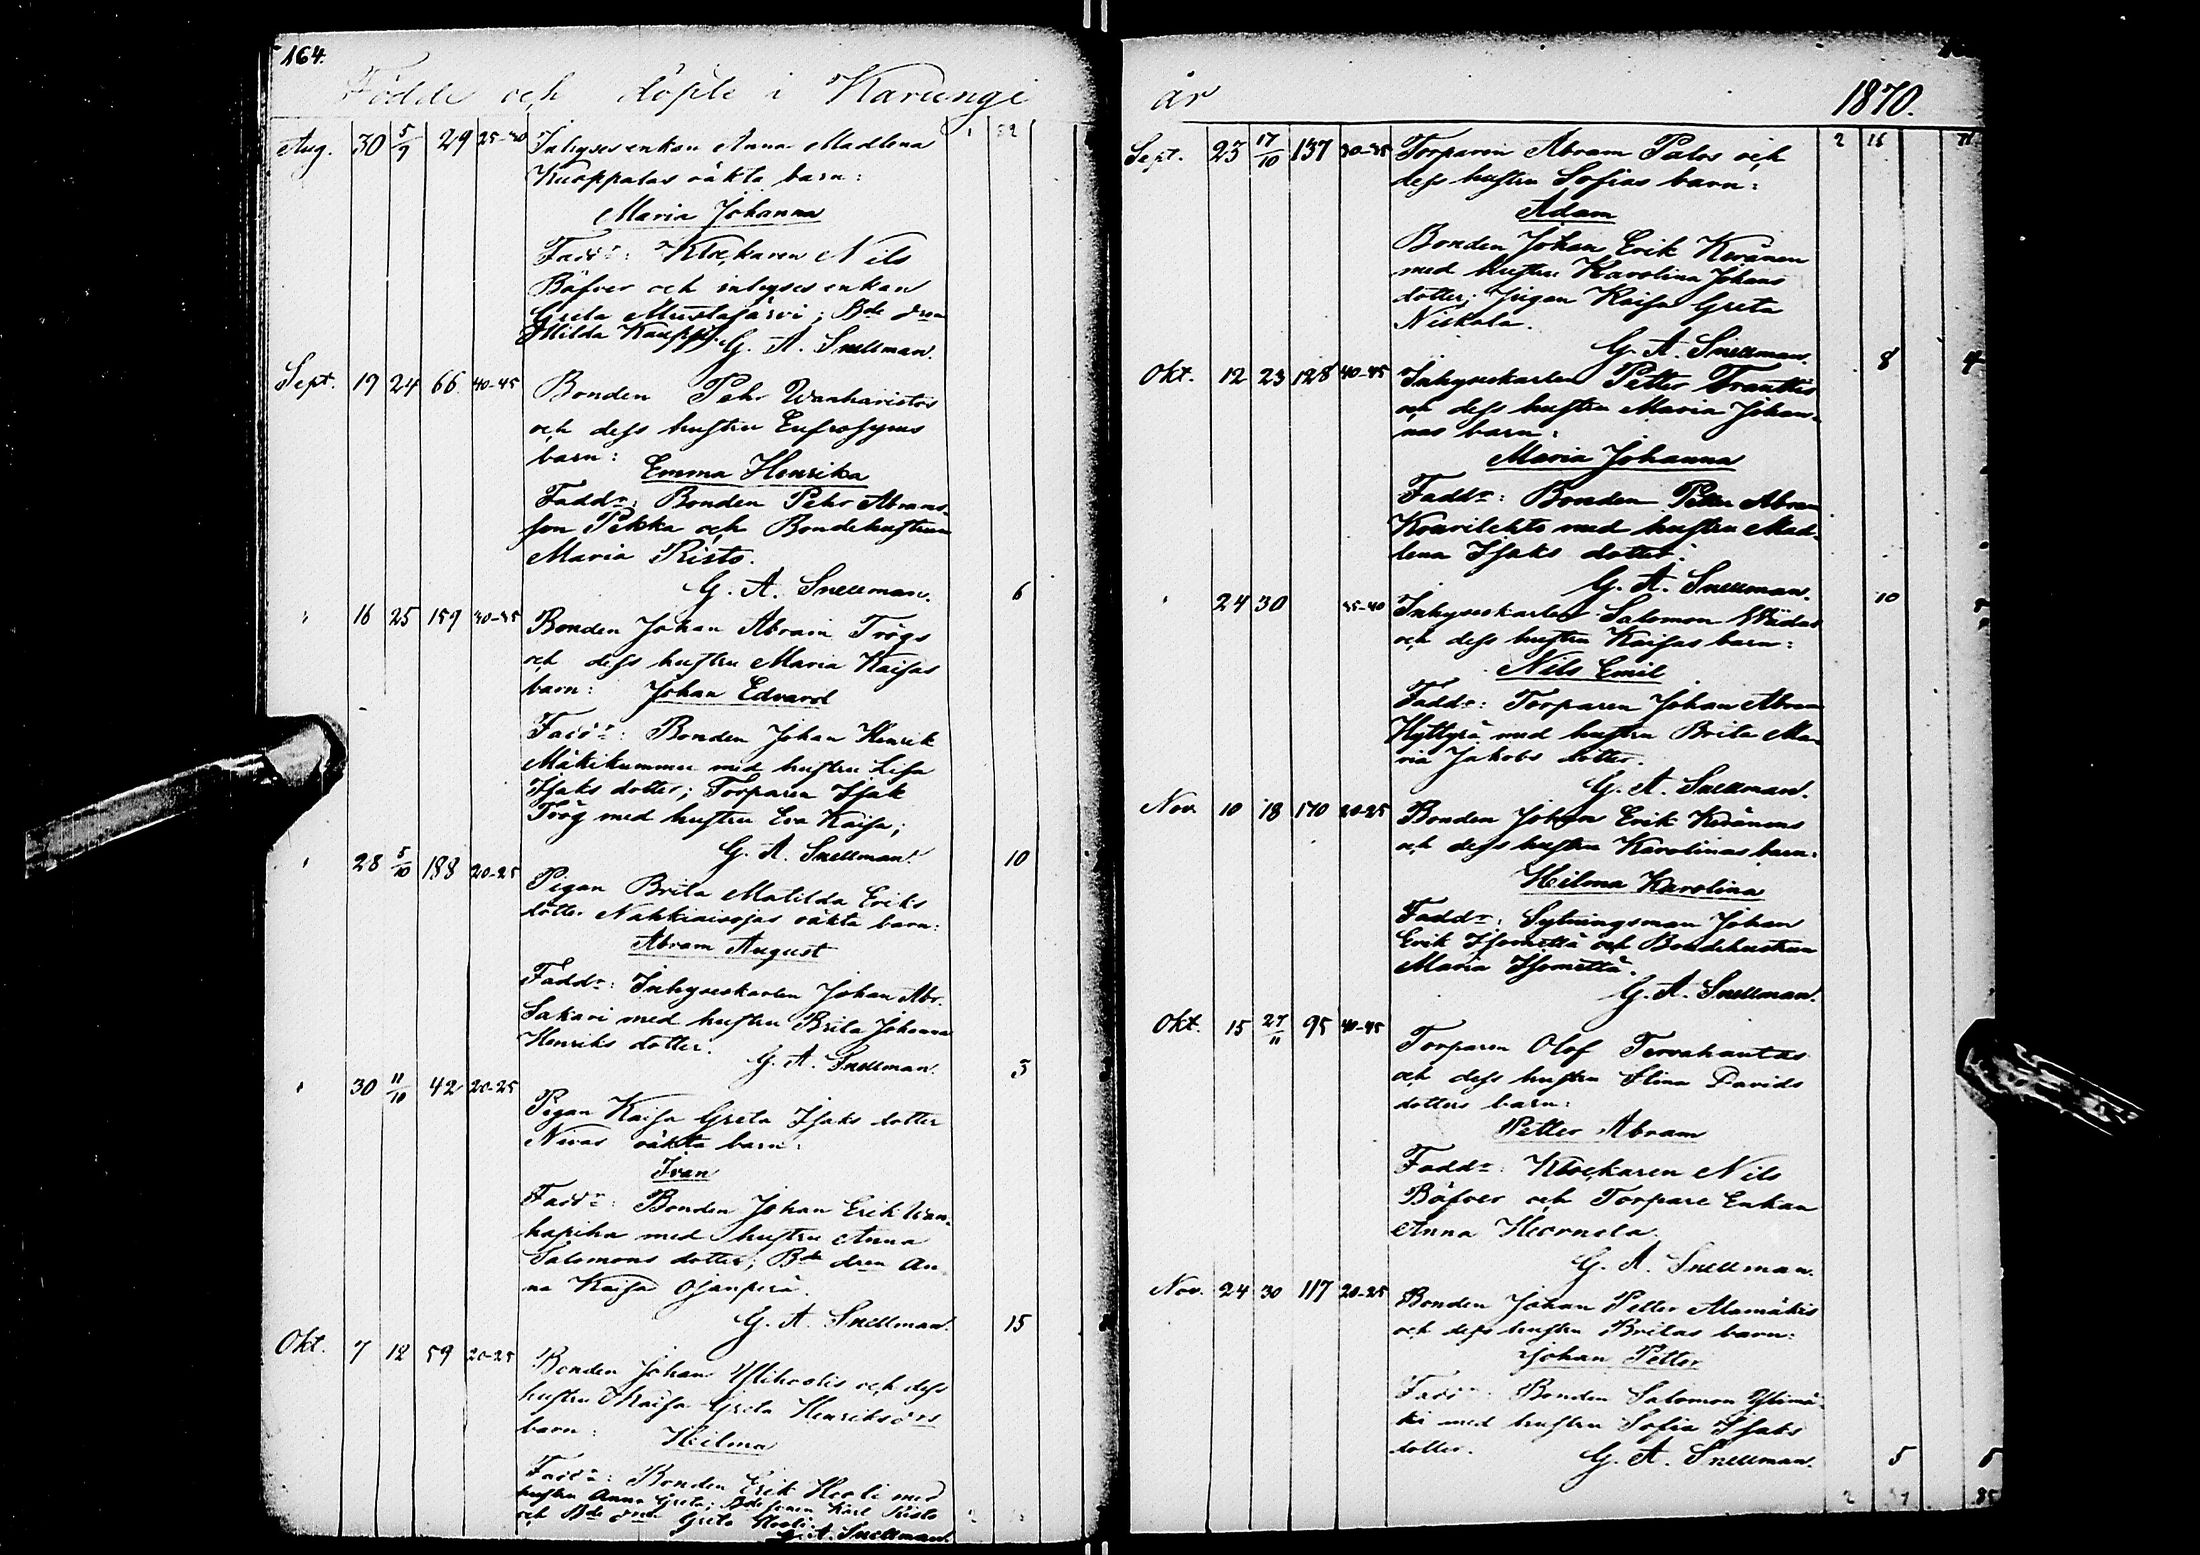 164.
Födde och döpte i Karungi
Aug. 30 5/9 29 25-30 Inhysesenkan Anna Madlena
Kuoppalas oäkta barn:
Maria Johanna
Fadd:r: Klockaren Nils
Bäfver och inhysesenkan
Greta Mustajärvi; Bde dren
Hilda Kauppi.
G. A. Snellman.
Sept. 19 24 66 40-45 Bonden Pehr Wanharistos
och dess hustru Eufrosyns
barn:
Emma Henrika
Fadd:r: Bonden Pehr Abrams
son Pekka och Bondehustrun
Maria Risto.
G. A. Snellman. 6
" 16 25 159 30-35 Bonden Johan Abram Trögs
och dess hustru Maria Kaisas
barn: Johan Edvard
Fadd:r: Bonden Johan Henrik
Mäkikummu med hustru Lisa
Isaks dotter; Torparen Isak
Trög med hustru Eva Kaisa;
G. A. Snellman. 10
" 28 5/10 188 20-25 Pigan Brita Matilda Eriks
dotter Nahkiaisojas oäkta barn:
Abram August
Fadd:r: Inhyseskarlen Johan Abr.
Sakari med hustru Brita Johanna
Henriks dotter.
G. A. Snellman. 3
" 30 11/10 42 20-25 Pigan Kaisa Greta Isaks dotter
Nivas oäkta barn:
Ivan
Fadd:r: Bonden Johan Erik Wan-
hapiha med hustru Anna
Salomons dotter; Bde dren An
na Kaisa Ojanperä.
G. A. Snellman. 15
Okt. 7 12 59 20-25 Bonden Johan Ylihoolis och dess
hustru Kaisa Greta Henriksdrs
barn: Hilma
Fadd:r: Bonden Erik Hooli med
hustru Anna Greta; Bde sonen Karl Risto
och Bde dren Greta Hooli.
G. A. Snellman.
år 1870.
Sept. 23 17/10 137 30-35 Torparen Abram Palos och 2 16
dess hustru Sofias barn:
Adam
Bonden Johan Erik Keränen
med hustru Karolina Johans
dotter; Pigan Kaisa Greta
Niskala.
G. A. Snellman. 8 4
Okt. 12 23 128 40-45 Inhyseskarlen Petter Franttis
och dess hustru Maria Johan-
nas barn:
Maria Johanna
Fadd:r: Bonden Petter Abram
Kourilehto med hustru Mad-
lena Isaks dotter.
G. A. Snellman. 10 5
" 24 30 35-40 Inhyseskarlen Salomon
och dess hustru Kaisas barn:
Nils Emil
Fadd:r: Torparen Johan Abram
Kyttyrä med hustru Brita Ma-
ria Jakobs dotter.
G. A. Snellman.
Nov. 10 18 170 20-25 Bonden Johan Erik Keränens
och dess hustru Karolinas barn:
Hilma Karolina
Fadd:r: Sytningsman Johan
Erik Isomettä och Bondehustrun
Maria Isomettä.
G. A. Snellman.
Okt. 15 27/11 95 40-45 Torparen Olof Tervahautas
och dess hustru Elina Davids
dotters barn:
Petter Abram
Fadd:r: Klockaren Nils
Bäfver och Torpare Enkan
Anna Heornela.
G. A. Snellman.
Nov. 24 30 117 20-25 Bonden Johan Petter Alamäkis
och dess hustru Britas barn:
Johan Petter
Fadd:r: Bonden Salomon Ylimä-
ki med hustru Sofia Isaks
dotter.
G. A. Snellman. 5 5